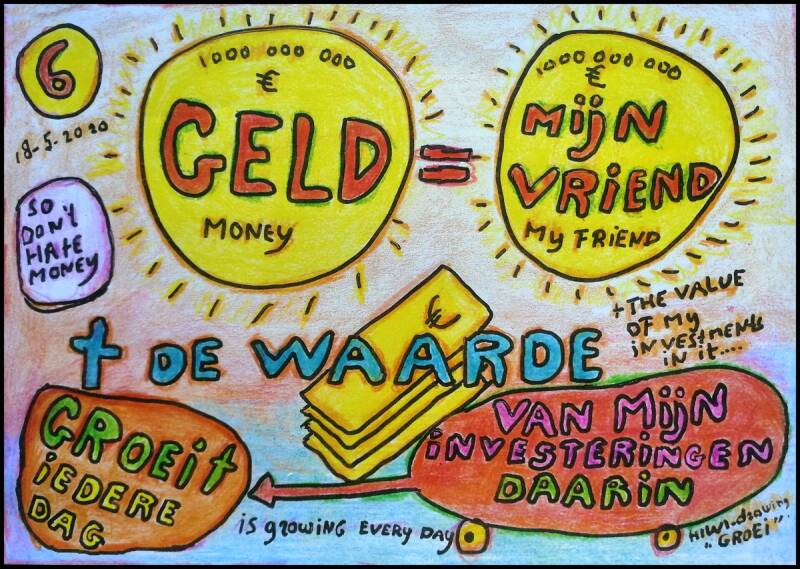 6
18-5-2020
1000 000 000
€
GELD
MONEY
=
1000 000 000
€
MijN
VRiEND
MY FRiEND
SO
DON't
HAtE
MONEY
€
+ DE WAARDE
+ THE VALUE
OF MY
iNVEStMENtS
iN it....
GROEit
iEDERE
DAG
VAN MijN
iNVESTERiNGEN
DAARiN
is gROWiNG EVERY DAY
HiWi-drawing
"GROEi"